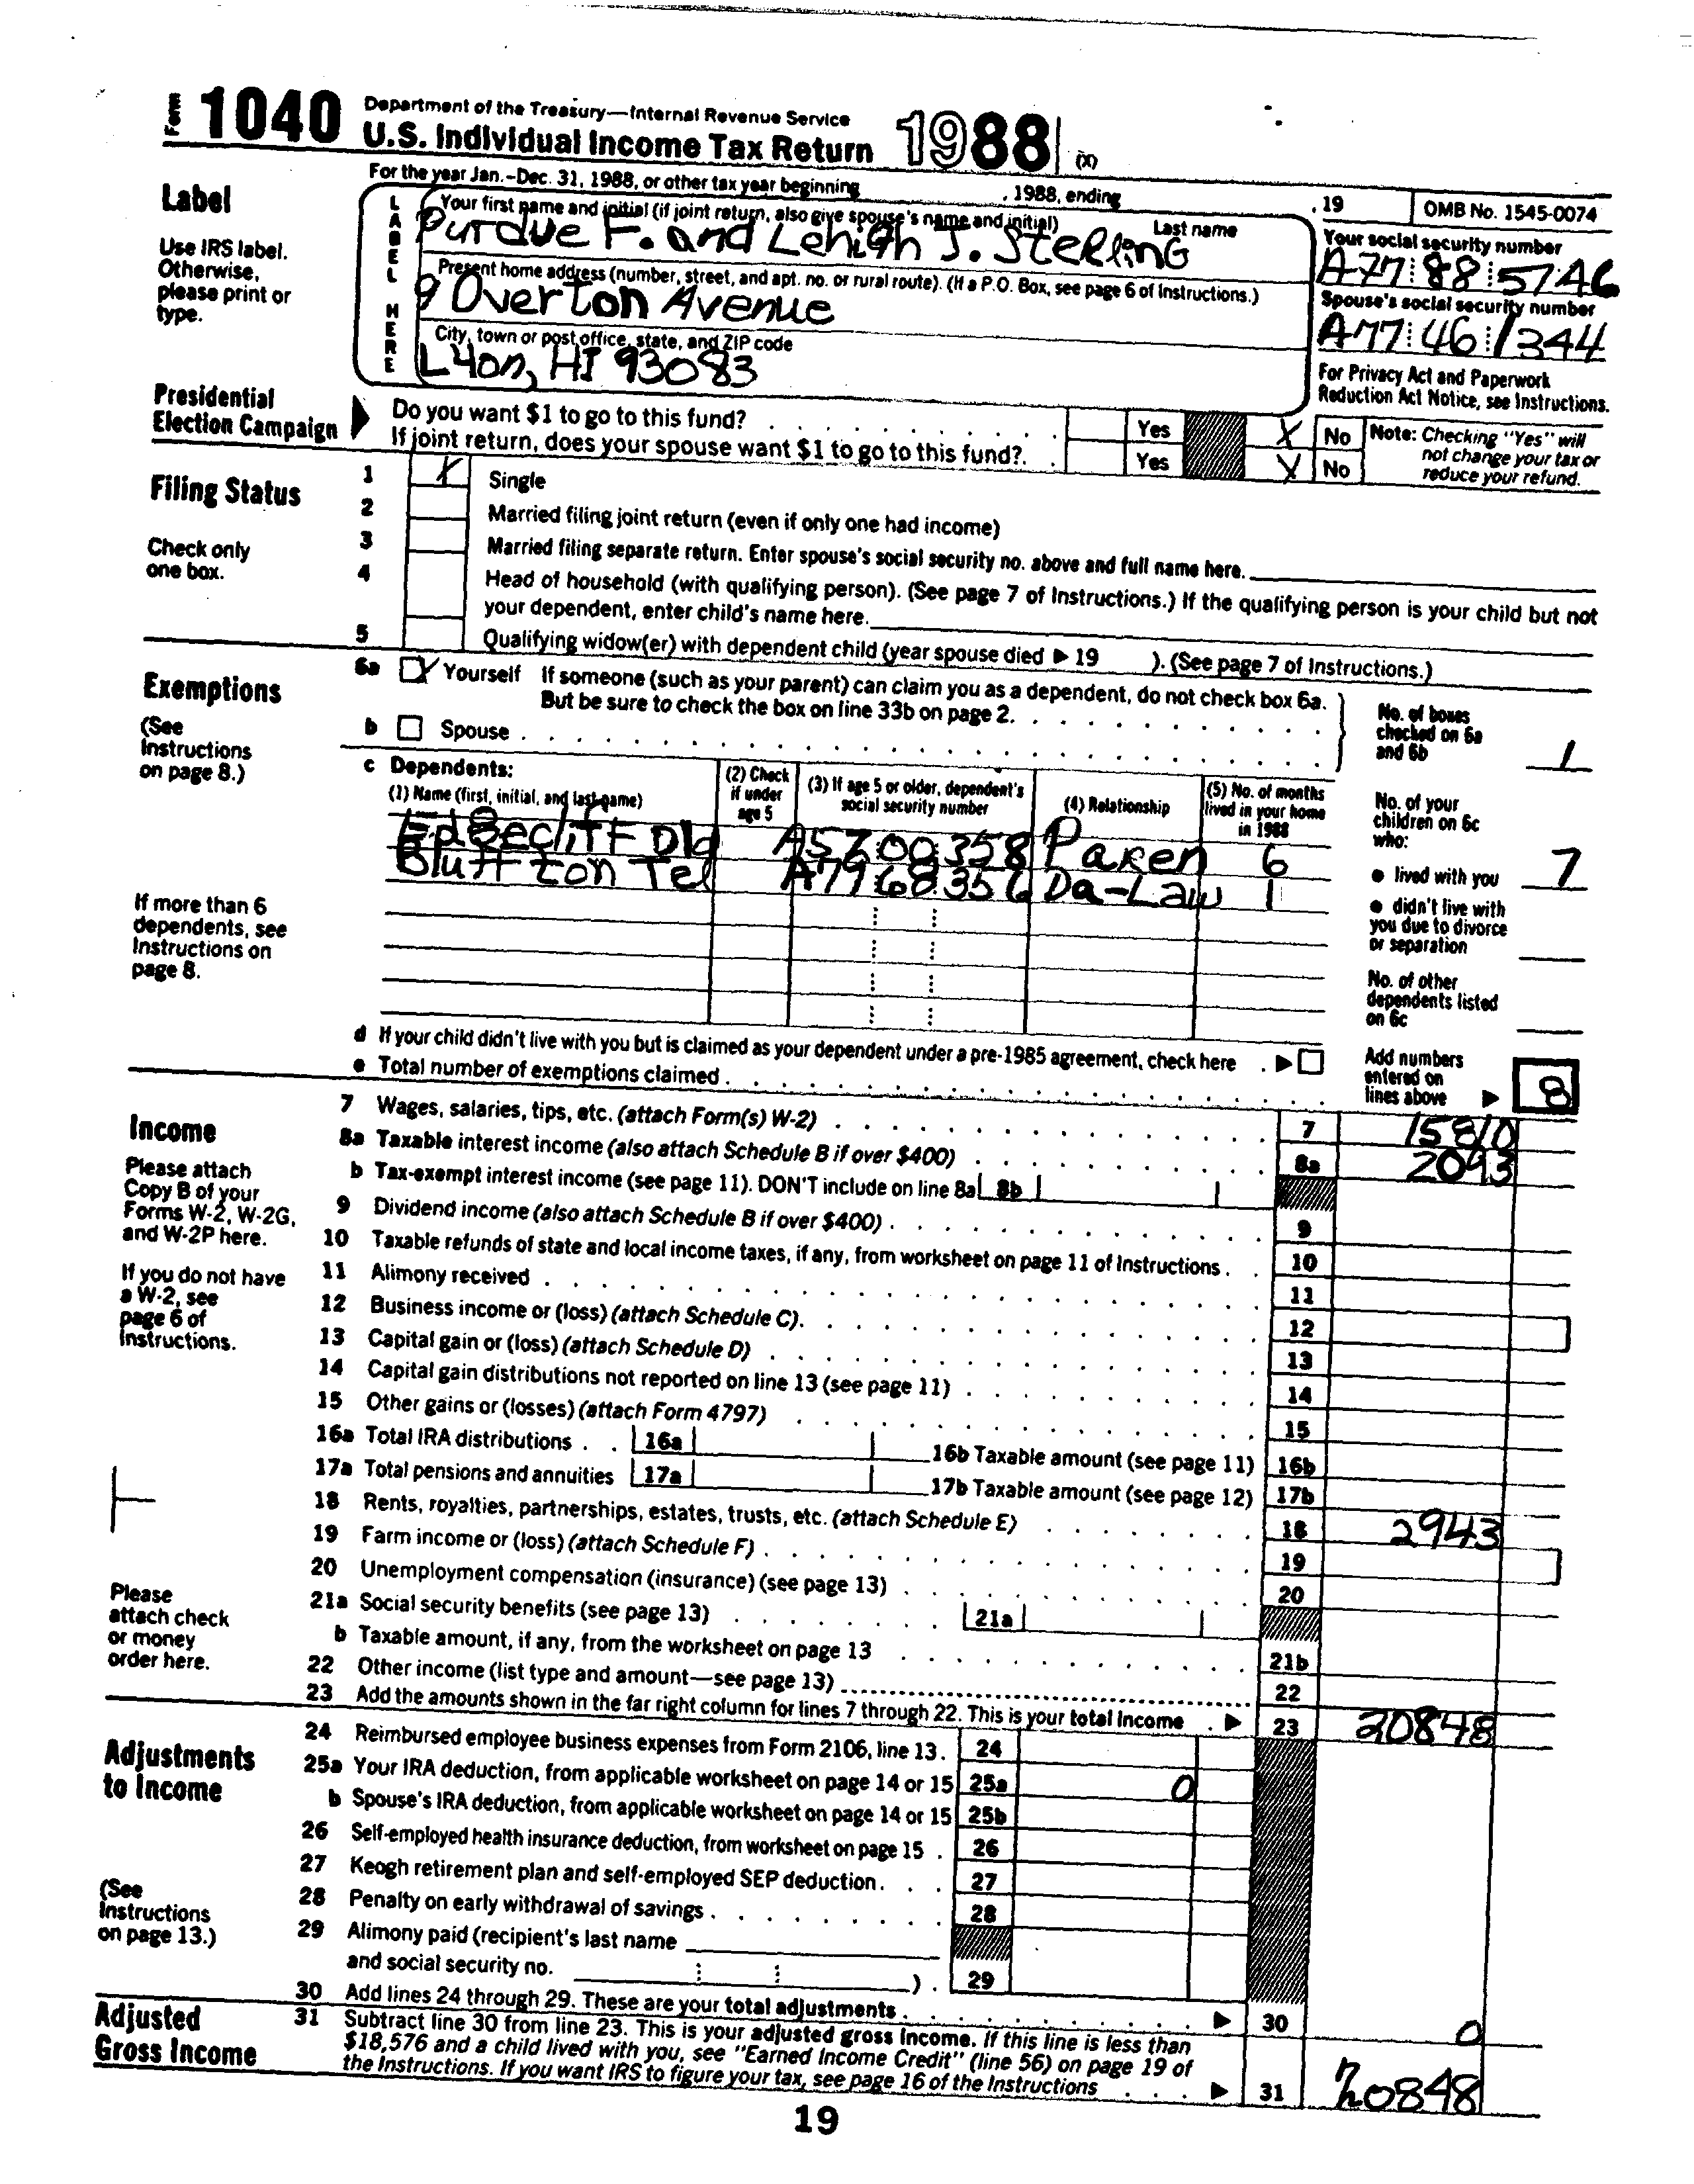 Form 1040 Department of the Treasury—Internal Revenue Service
U.S. Individual Income Tax Return 1988 (X)
For the year Jan.-Dec. 31, 1988, or other tax year beginning , 1988, ending , 19 OMB No. 1545-0074
Label
Use IRS label. Otherwise, please print or type.
LABEL HERE
Your first name and initial (if joint return, also give spouse's name and initial) Last name
Purdue F. and Lehigh J. Sterling
Your social security number
A77 88 5746
Present home address (number, street, and apt. no. or rural route). (If a P.O. Box, see page 6 of Instructions.)
9 Overton Avenue
Spouse's social security number
A77 46 1344
City, town or post office, state, and ZIP code
Lyon, HI 93083
For Privacy Act and Paperwork Reduction Act Notice, see Instructions.
Presidential Election Campaign
Do you want $1 to go to this fund? Yes X No
If joint return, does your spouse want $1 to go to this fund? Yes X No
Note: Checking "Yes" will not change your tax or reduce your refund.
Filing Status
Check only one box.
1 X Single
2 Married filing joint return (even if only one had income)
3 Married filing separate return. Enter spouse's social security no. above and full name here.
4 Head of household (with qualifying person). (See page 7 of Instructions.) If the qualifying person is your child but not
your dependent, enter child's name here.
5 Qualifying widow(er) with dependent child (year spouse died ▶ 19 ). (See page 7 of Instructions.)
Exemptions
(See Instructions on page 8.)
6a X Yourself If someone (such as your parent) can claim you as a dependent, do not check box 6a.
But be sure to check the box on line 33b on page 2.
b Spouse
No. of boxes checked on 6a and 6b 1
c Dependents:
(1) Name (first, initial, and last name) (2) Check if under age 5 (3) If age 5 or older, dependent's social security number (4) Relationship (5) No. of months lived in your home in 1988
A5700358 Paren 6
Bluffton Tel A7768356 Da-Law 1
No. of your children on 6c who:
● lived with you 7
● didn't live with you due to divorce or separation
No. of other dependents listed on 6c
If more than 6 dependents, see Instructions on page 8.
d If your child didn't live with you but is claimed as your dependent under a pre-1985 agreement, check here ▶
e Total number of exemptions claimed
Add numbers entered on lines above ▶ 8
Income
Please attach Copy B of your Forms W-2, W-2G, and W-2P here.
If you do not have a W-2, see page 6 of Instructions.
Please attach check or money order here.
7 Wages, salaries, tips, etc. (attach Form(s) W-2) 7 15810
8a Taxable interest income (also attach Schedule B if over $400) 8a 2093
b Tax-exempt interest income (see page 11). DON'T include on line 8a 8b
9 Dividend income (also attach Schedule B if over $400) 9
10 Taxable refunds of state and local income taxes, if any, from worksheet on page 11 of Instructions 10
11 Alimony received 11
12 Business income or (loss) (attach Schedule C) 12
13 Capital gain or (loss) (attach Schedule D) 13
14 Capital gain distributions not reported on line 13 (see page 11) 14
15 Other gains or (losses) (attach Form 4797) 15
16a Total IRA distributions 16a 16b Taxable amount (see page 11) 16b
17a Total pensions and annuities 17a 17b Taxable amount (see page 12) 17b
18 Rents, royalties, partnerships, estates, trusts, etc. (attach Schedule E) 18 2943
19 Farm income or (loss) (attach Schedule F) 19
20 Unemployment compensation (insurance) (see page 13) 20
21a Social security benefits (see page 13) 21a
b Taxable amount, if any, from the worksheet on page 13 21b
22 Other income (list type and amount—see page 13) 22
23 Add the amounts shown in the far right column for lines 7 through 22. This is your total income ▶ 23 20848
Adjustments to Income
(See Instructions on page 13.)
24 Reimbursed employee business expenses from Form 2106, line 13. 24
25a Your IRA deduction, from applicable worksheet on page 14 or 15 25a 0
b Spouse's IRA deduction, from applicable worksheet on page 14 or 15 25b
26 Self-employed health insurance deduction, from worksheet on page 15 26
27 Keogh retirement plan and self-employed SEP deduction 27
28 Penalty on early withdrawal of savings 28
29 Alimony paid (recipient's last name
and social security no. ) 29
30 Add lines 24 through 29. These are your total adjustments ▶ 30 0
Adjusted Gross Income
31 Subtract line 30 from line 23. This is your adjusted gross income. If this line is less than
$18,576 and a child lived with you, see "Earned Income Credit" (line 56) on page 19 of
the Instructions. If you want IRS to figure your tax, see page 16 of the Instructions ▶ 31 20848
19